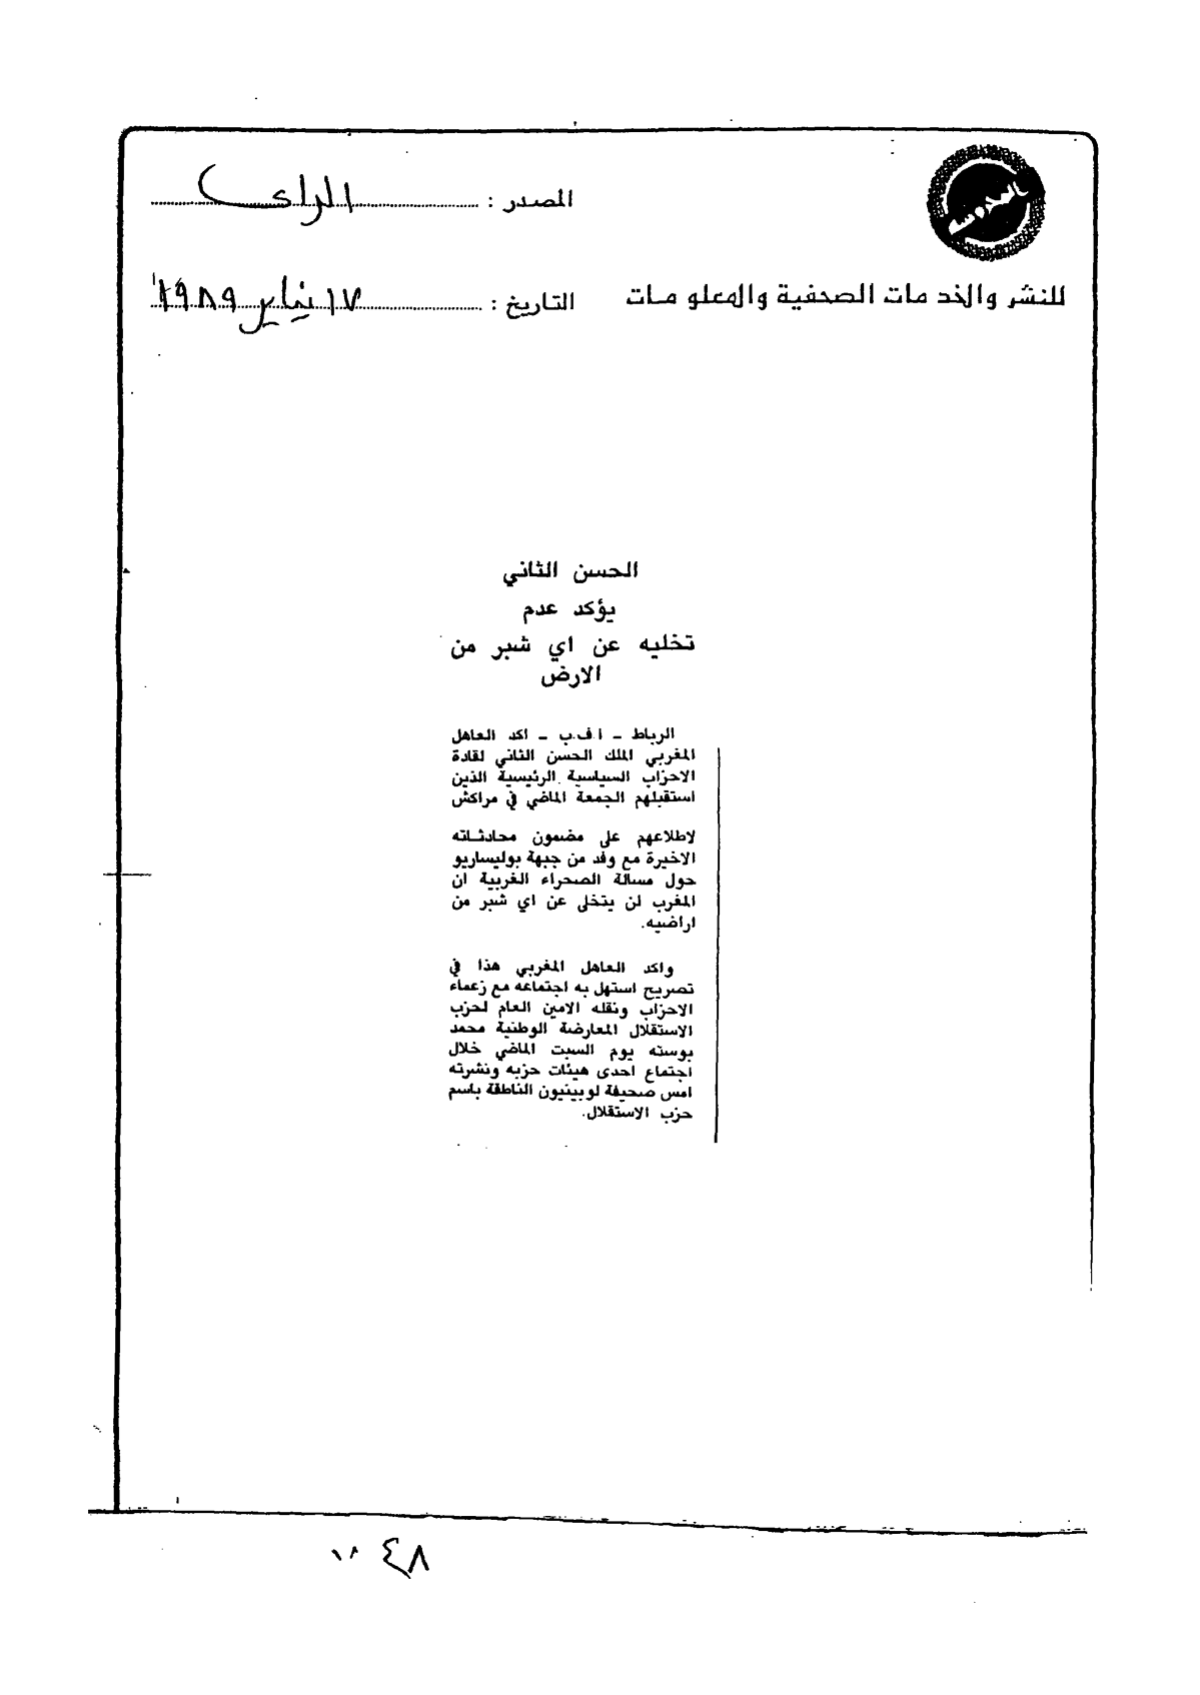 المصدر : الراى
للنشر والخدمات الصحفية والمعلومات
التاريخ : ١٧ يناير ١٩٨٩
الحسن الثاني
يؤكد عدم
تخليه عن اي شبر من
الارض
الرباط ـ ا.ف.ب ـ اكد العاهل
المغربي الملك الحسن الثاني لقادة
الاحزاب السياسية الرئيسية الذين
استقبلهم الجمعة الماضي في مراكش
لاطلاعهم على مضمون محادثاته
الاخيرة مع وفد من جبهة بوليساريو
حول مسالة الصحراء الغربية ان
المغرب لن يتخلى عن اي شبر من
اراضيه.
واكد العاهل المغربي هذا في
تصريح استهل به اجتماعه مع زعماء
الاحزاب ونقله الامين العام لحزب
الاستقلال المعارضة الوطنية محمد
بوسته يوم السبت الماضي خلال
اجتماع احدى هيئات حزبه ونشرته
امس صحيفة لوبينيون الناطقة باسم
حزب الاستقلال.
٤٨